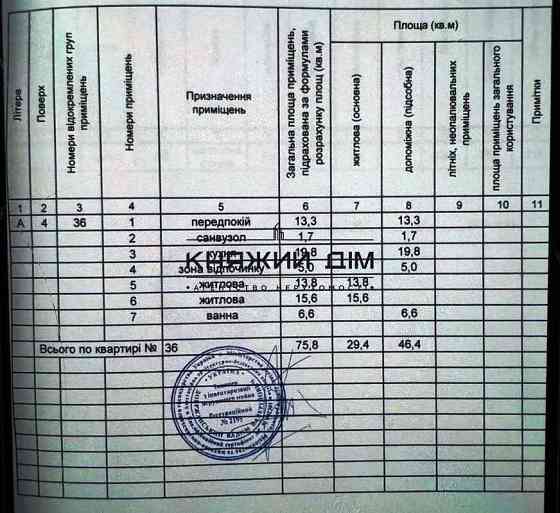 Літера
Поверх
Номери відокремлених груп приміщень
Номери приміщень
Призначення приміщень
Загальна площа приміщень, підрахована за формулами розрахунку площ (кв.м)
Площа (кв.м)
житлова (основна)
допоміжна (підсобна)
літніх, неопалювальних приміщень
площа приміщень загального користування
Примітки
1 2 3 4 5 6 7 8 9 10 11
А 4 36 1 передпокій 13,3 13,3
2 санвузол 1,7 1,7
3 кухня 19,8 19,8
4 зона відпочинку 5,0 5,0
5 житлова 13,8 13,8
6 житлова 15,6 15,6
7 ванна 6,6 6,6
КНЯЖИЙ ДІМ
АГЕНТСТВО НЕРУХОМОСТІ
Всього по квартирі № 36 75,8 29,4 46,4
Україна
Технічна
інвентаризація
нерухомого майна
Реєстраційний